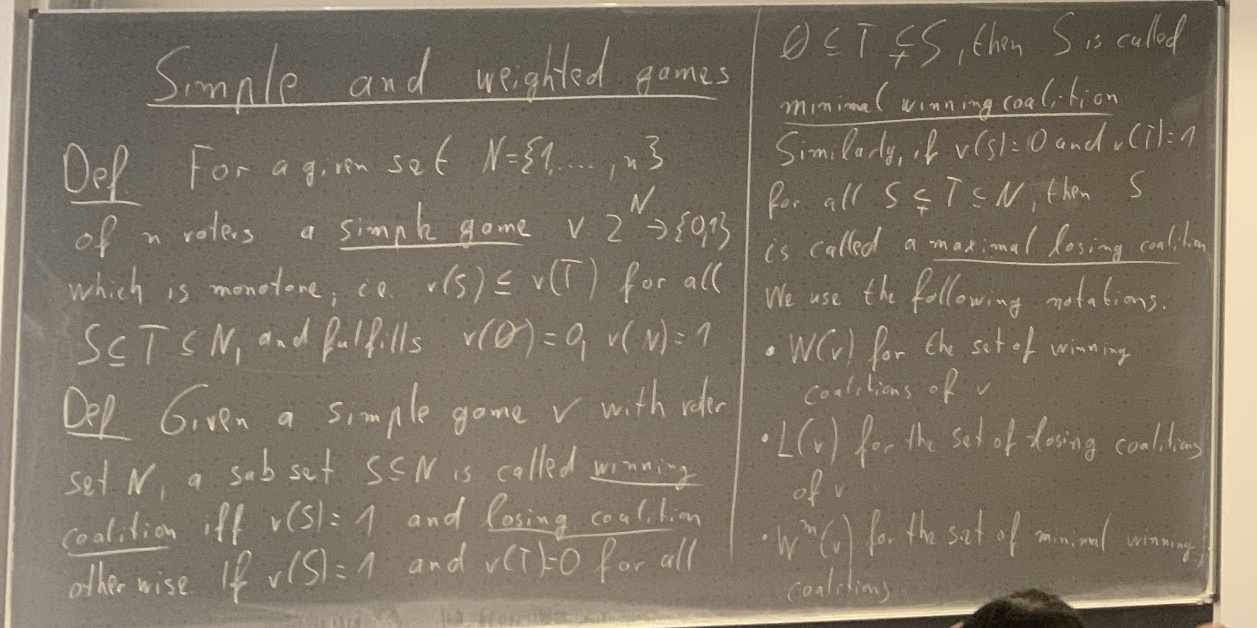 Simple and weighted games
Def. For a given set N={1,....,n}
of n voters a simple game v: 2^N → {0,1}
which is monotone, i.e. v(S) ≤ v(T) for all
S ⊆ T ⊆ N, and fulfills v(∅) = 0, v(N) = 1
Def Given a simple game v with voter
set N, a subset S ⊆ N is called winning
coalition iff v(S) = 1 and losing coalition
otherwise If v(S) = 1 and v(T)=0 for all
∅ ⊆ T ⊊ S, then S is called
minimal winning coalition
Similarly, if v(S)=0 and v(T)=1
for all S ⊊ T ⊆ N, then S
is called a maximal losing coalition
We use the following notations.
• W(v) for the set of winning
coalitions of v
• L(v) for the set of losing coalitions
of v
• W^m(v) for the set of minimal winning
coalitions